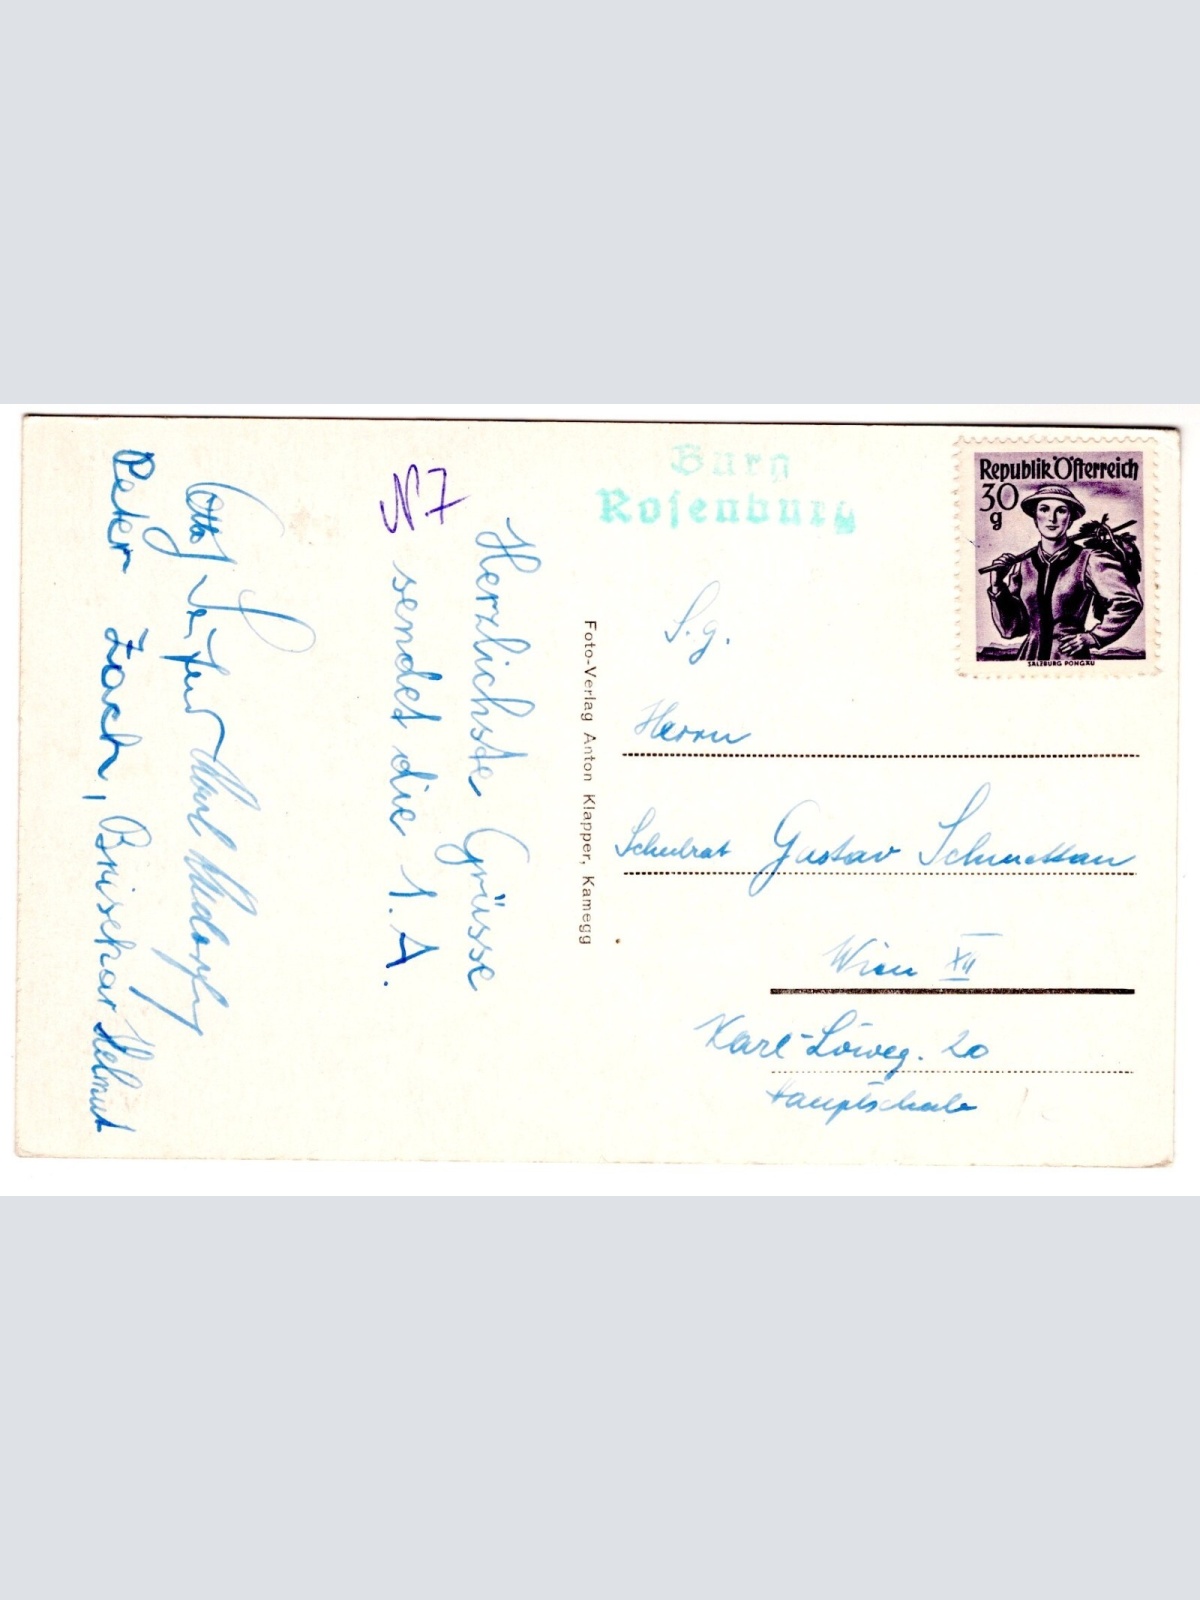 N7
Herzlichste Grüsse
sendet die 1. A.
Otto
Peter Zach, Brischar Helmut
Foto-Verlag Anton Klapper, Kamegg
Burg
Rosenburg
Republik Österreich
30
g
SALZBURG PONGAU
S. g.
Herrn
Schulrat Gustav
Wien XII
Karl-Löweg. 20
Hauptschule